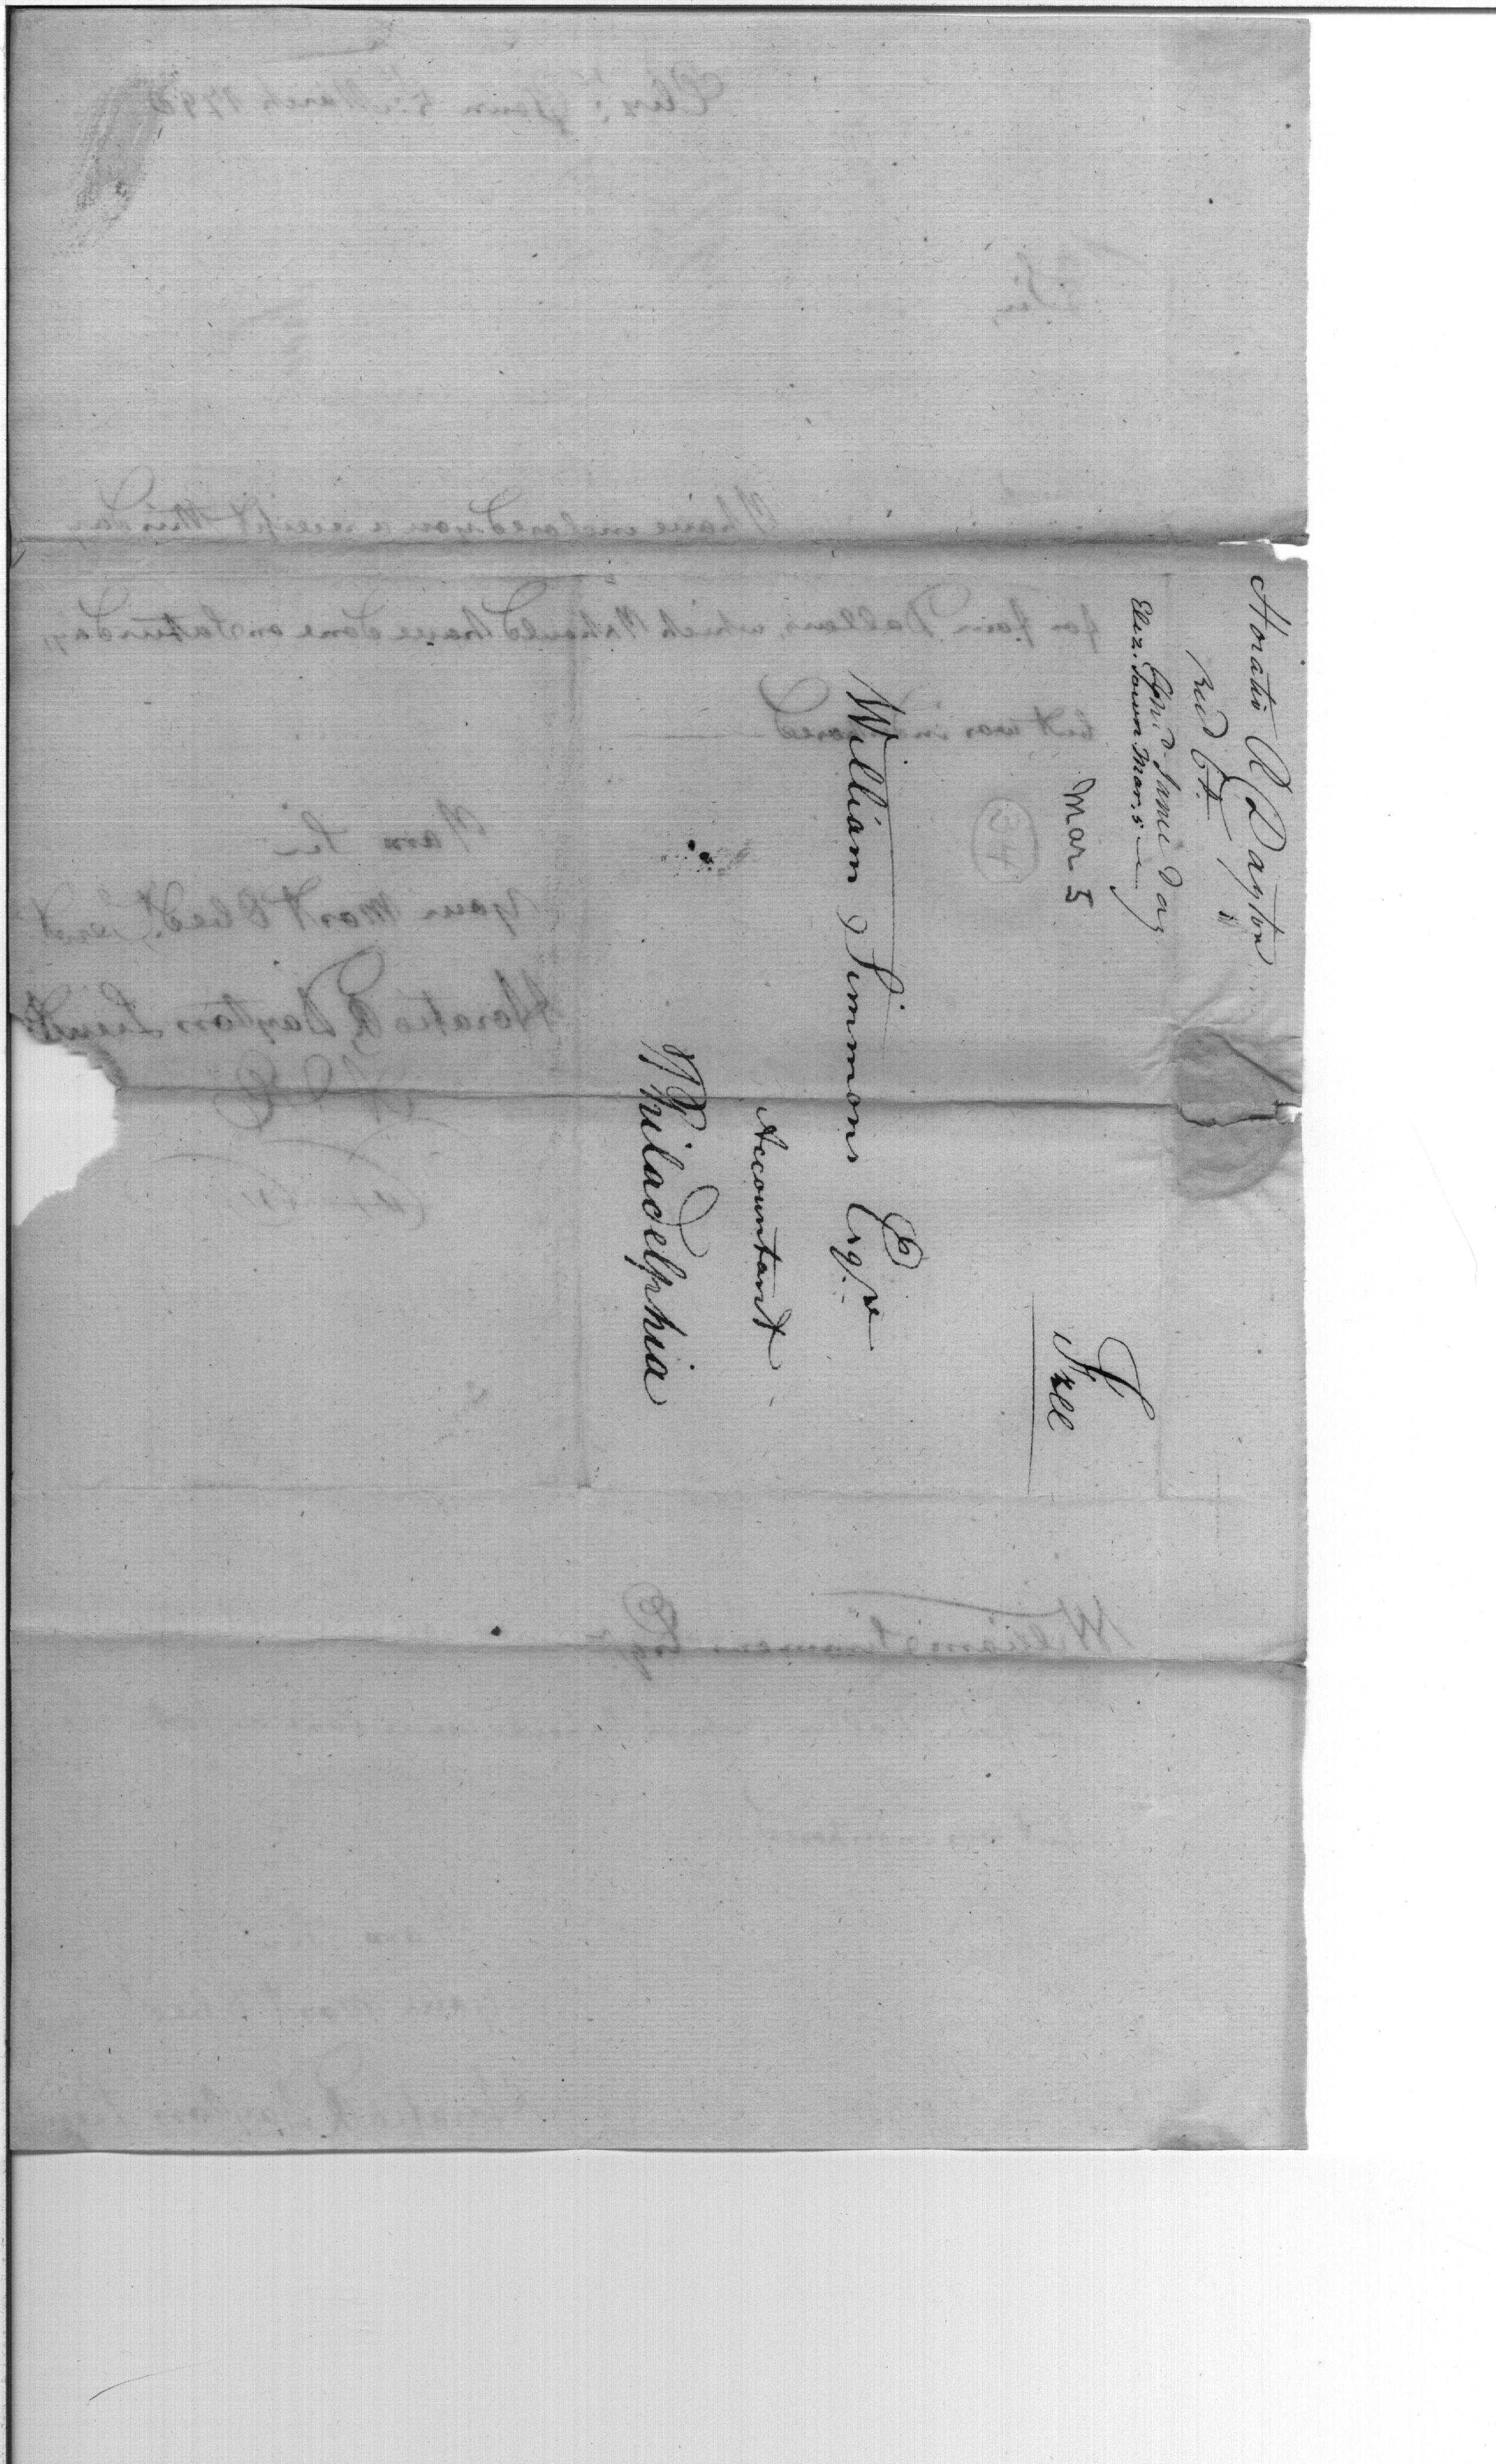 Horatio R Dayton
recd 6th
Ansd same day
Eliz. Town Mar. 5
Mar 5
34
Free
William Simmons Esqr
Accountant
Philadelphia
Eliz: Town 5th March 179
Sir,
I have enclosed you a receipt this day
for four Dollars, which I should have done on Saturday,
but was
I am Sir
your most Obedt. Servt
Horatio R Dayton Lieut
William Simmons Esqr